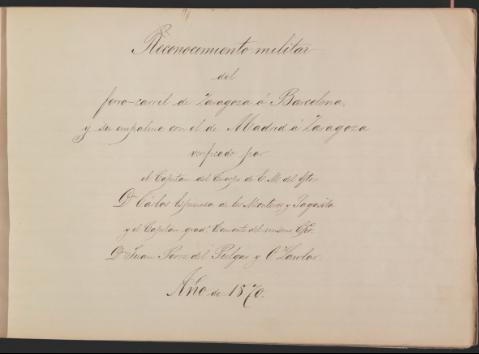 Reconocimiento militar
del
ferro-carril de Zaragoza á Barcelona,
y su empalme con el de Madrid á Zaragoza
verificado por
el Capitan del Cuerpo de E. M. del Ejto.
Dn. Cárlos Espinosa de los Monteros y Sagaseta
y el Capitan grado. Comante. del mismo Cpo.
Dn. Juan Perez del Pulgar y O'Lawlor.
Año de 1870.